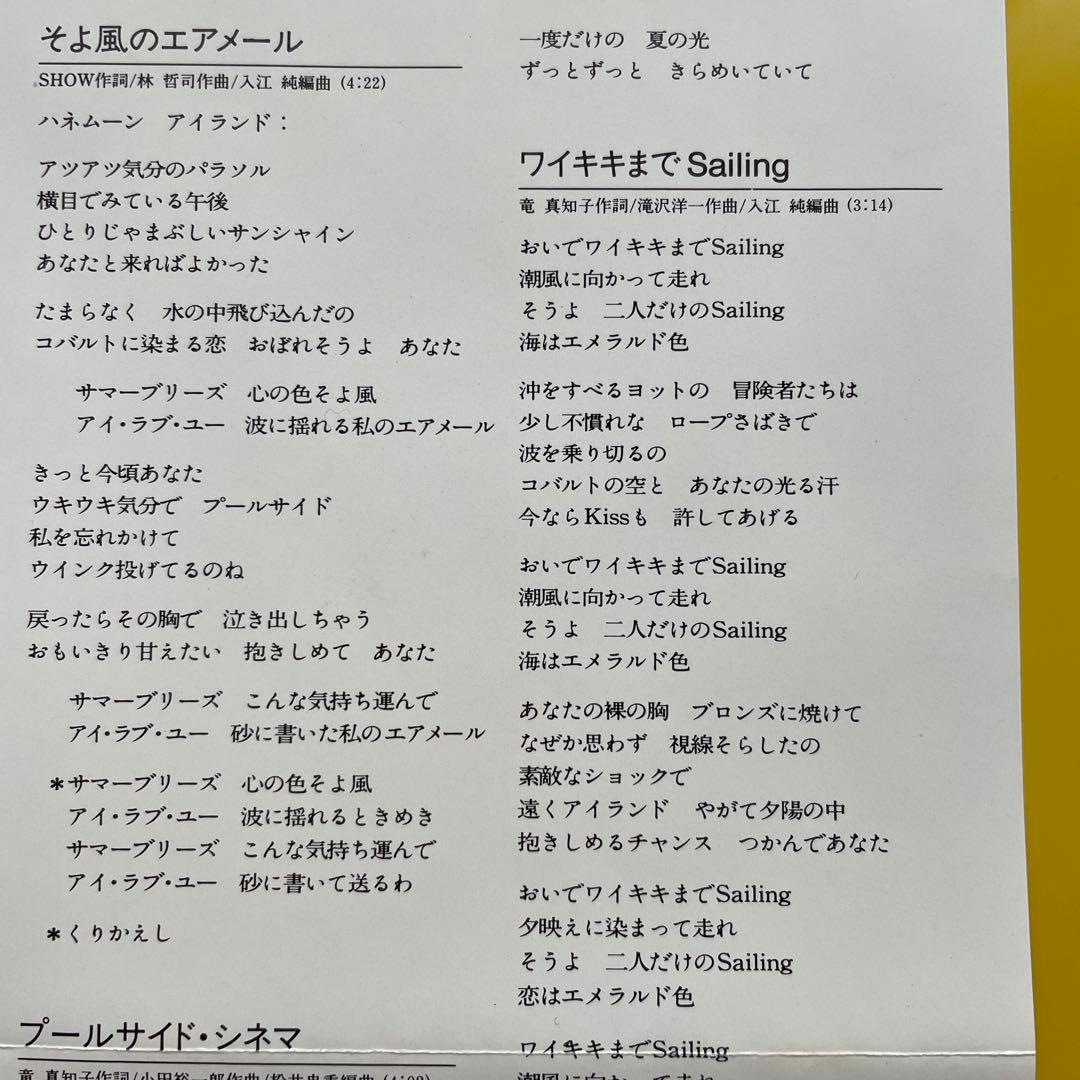 そよ風のエアメール
SHOW作詞/林 哲司作曲/入江 純編曲 (4:22)
ハネムーン アイランド：
アツアツ気分のパラソル
横目でみている午後
ひとりじゃまぶしいサンシャイン
あなたと来ればよかった
たまらなく 水の中飛び込んだの
コバルトに染まる恋 おぼれそうよ あなた
サマーブリーズ 心の色そよ風
アイ・ラブ・ユー 波に揺れる私のエアメール
きっと今頃あなた
ウキウキ気分で プールサイド
私を忘れかけて
ウインク投げてるのね
戻ったらその胸で 泣き出しちゃう
おもいきり甘えたい 抱きしめて あなた
サマーブリーズ こんな気持ち運んで
アイ・ラブ・ユー 砂に書いた私のエアメール
＊サマーブリーズ 心の色そよ風
アイ・ラブ・ユー 波に揺れるときめき
サマーブリーズ こんな気持ち運んで
アイ・ラブ・ユー 砂に書いて送るわ
＊くりかえし
プールサイド・シネマ
竜 真知子作詞/小田裕一郎作曲/松井忠重編曲
一度だけの 夏の光
ずっとずっと きらめいていて
ワイキキまでSailing
竜 真知子作詞/滝沢洋一作曲/入江 純編曲 (3:14)
おいでワイキキまでSailing
潮風に向かって走れ
そうよ 二人だけのSailing
海はエメラルド色
沖をすべるヨットの 冒険者たちは
少し不慣れな ロープさばきで
波を乗り切るの
コバルトの空と あなたの光る汗
今ならKissも 許してあげる
おいでワイキキまでSailing
潮風に向かって走れ
そうよ 二人だけのSailing
海はエメラルド色
あなたの裸の胸 ブロンズに焼けて
なぜか思わず 視線そらしたの
素敵なショックで
遠くアイランド やがて夕陽の中
抱きしめるチャンス つかんであなた
おいでワイキキまでSailing
夕映えに染まって走れ
そうよ 二人だけのSailing
恋はエメラルド色
ワイキキまでSailing
潮風に向かって走れ